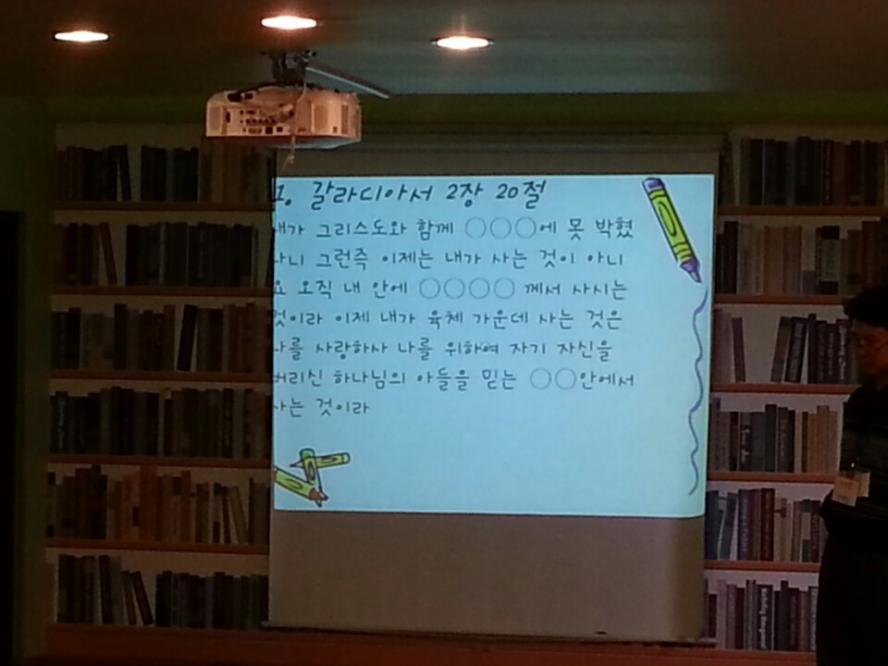 1. 갈라디아서 2장 20절
내가 그리스도와 함께 ○○○에 못 박혔
나니 그런즉 이제는 내가 사는 것이 아니
요 오직 내 안에 ○○○○ 께서 사시는
것이라 이제 내가 육체 가운데 사는 것은
나를 사랑하사 나를 위하여 자기 자신을
버리신 하나님의 아들을 믿는 ○○안에서
사는 것이라